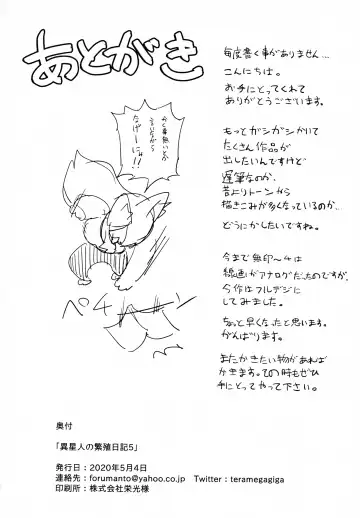 あとがき
毎度書く事がありません…
こんにちは。
お手にとってくれて
ありがとうございます。
もっとガシガシかいて
たくさん作品が
出したいんですけど
遅筆なのか、
昔よりトーンから
描きこみが多くなっているのか…
どうにかしたいですね。
今まで無印〜4は
線画がアナログだったのですが、
今作はフルデジに
してみました。
ちょっと早くなったと思います。
がんばります。
またかきたい物があれば
かきます。その時もぜひ
手にとってやって下さい。
書く事無いとか
言いながら
なげーにょ!!
ペチーン
奥付
「異星人の繁殖日記5」
発行日：2020年5月4日
連絡先：forumanto@yahoo.co.jp Twitter：teramegagiga
印刷所：株式会社栄光様